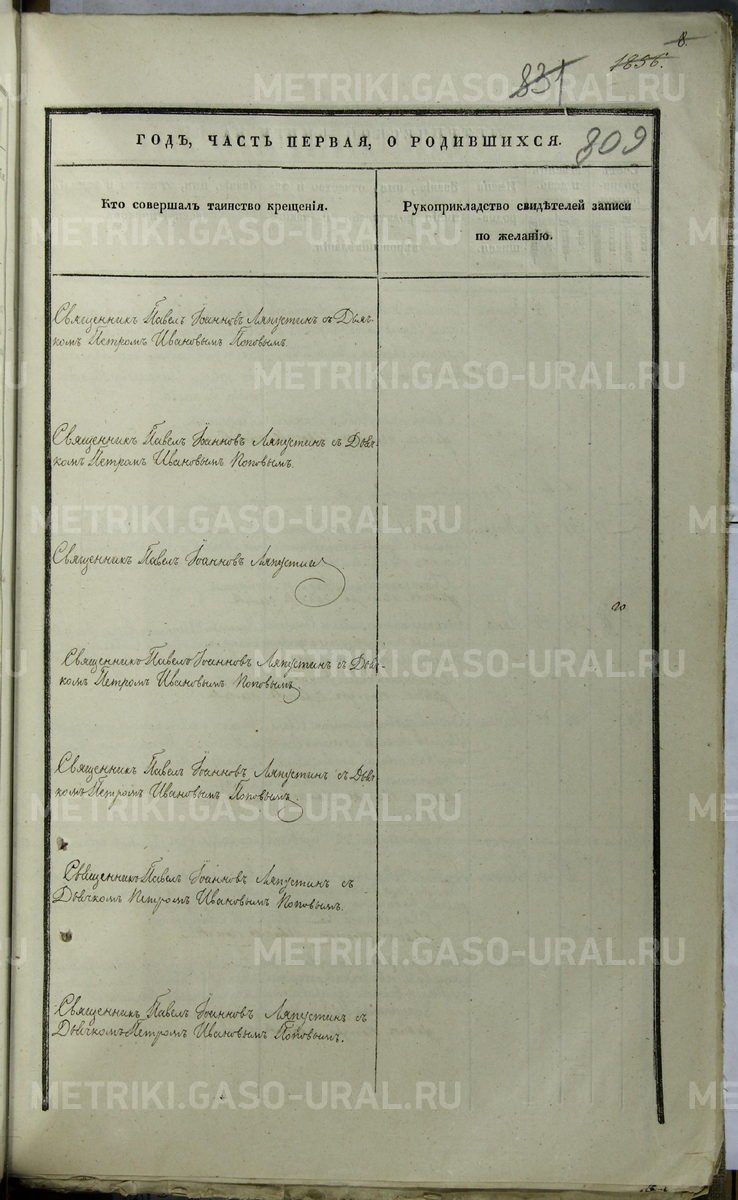 8.
1856.
831
809
ГОДЪ, ЧАСТЬ ПЕРВАЯ, О РОДИВШИХСЯ.
Кто совершалъ таинство крещенія.
Рукоприкладство свидѣтелей записи
по желанію.
Священникъ Павелъ Іоанновъ Ляпустинъ съ Дьяч-
комъ Петромъ Ивановымъ Поповымъ.
Священникъ Павелъ Іоанновъ Ляпустинъ съ Дьяч-
комъ Петромъ Ивановымъ Поповымъ.
Священникъ Павелъ Іоанновъ Ляпустинъ
Священникъ Павелъ Іоанновъ Ляпустинъ съ Дьяч-
комъ Петромъ Ивановымъ Поповымъ.
Священникъ Павелъ Іоанновъ Ляпустинъ съ Дьяч-
комъ Петромъ Ивановымъ Поповымъ.
Священникъ Павелъ Іоанновъ Ляпустинъ съ
Дьячкомъ Петромъ Ивановымъ Поповымъ.
Священникъ Павелъ Іоанновъ Ляпустинъ съ
Дьячкомъ Петромъ Ивановымъ Поповымъ.
METRIKI.GASO-URAL.RU